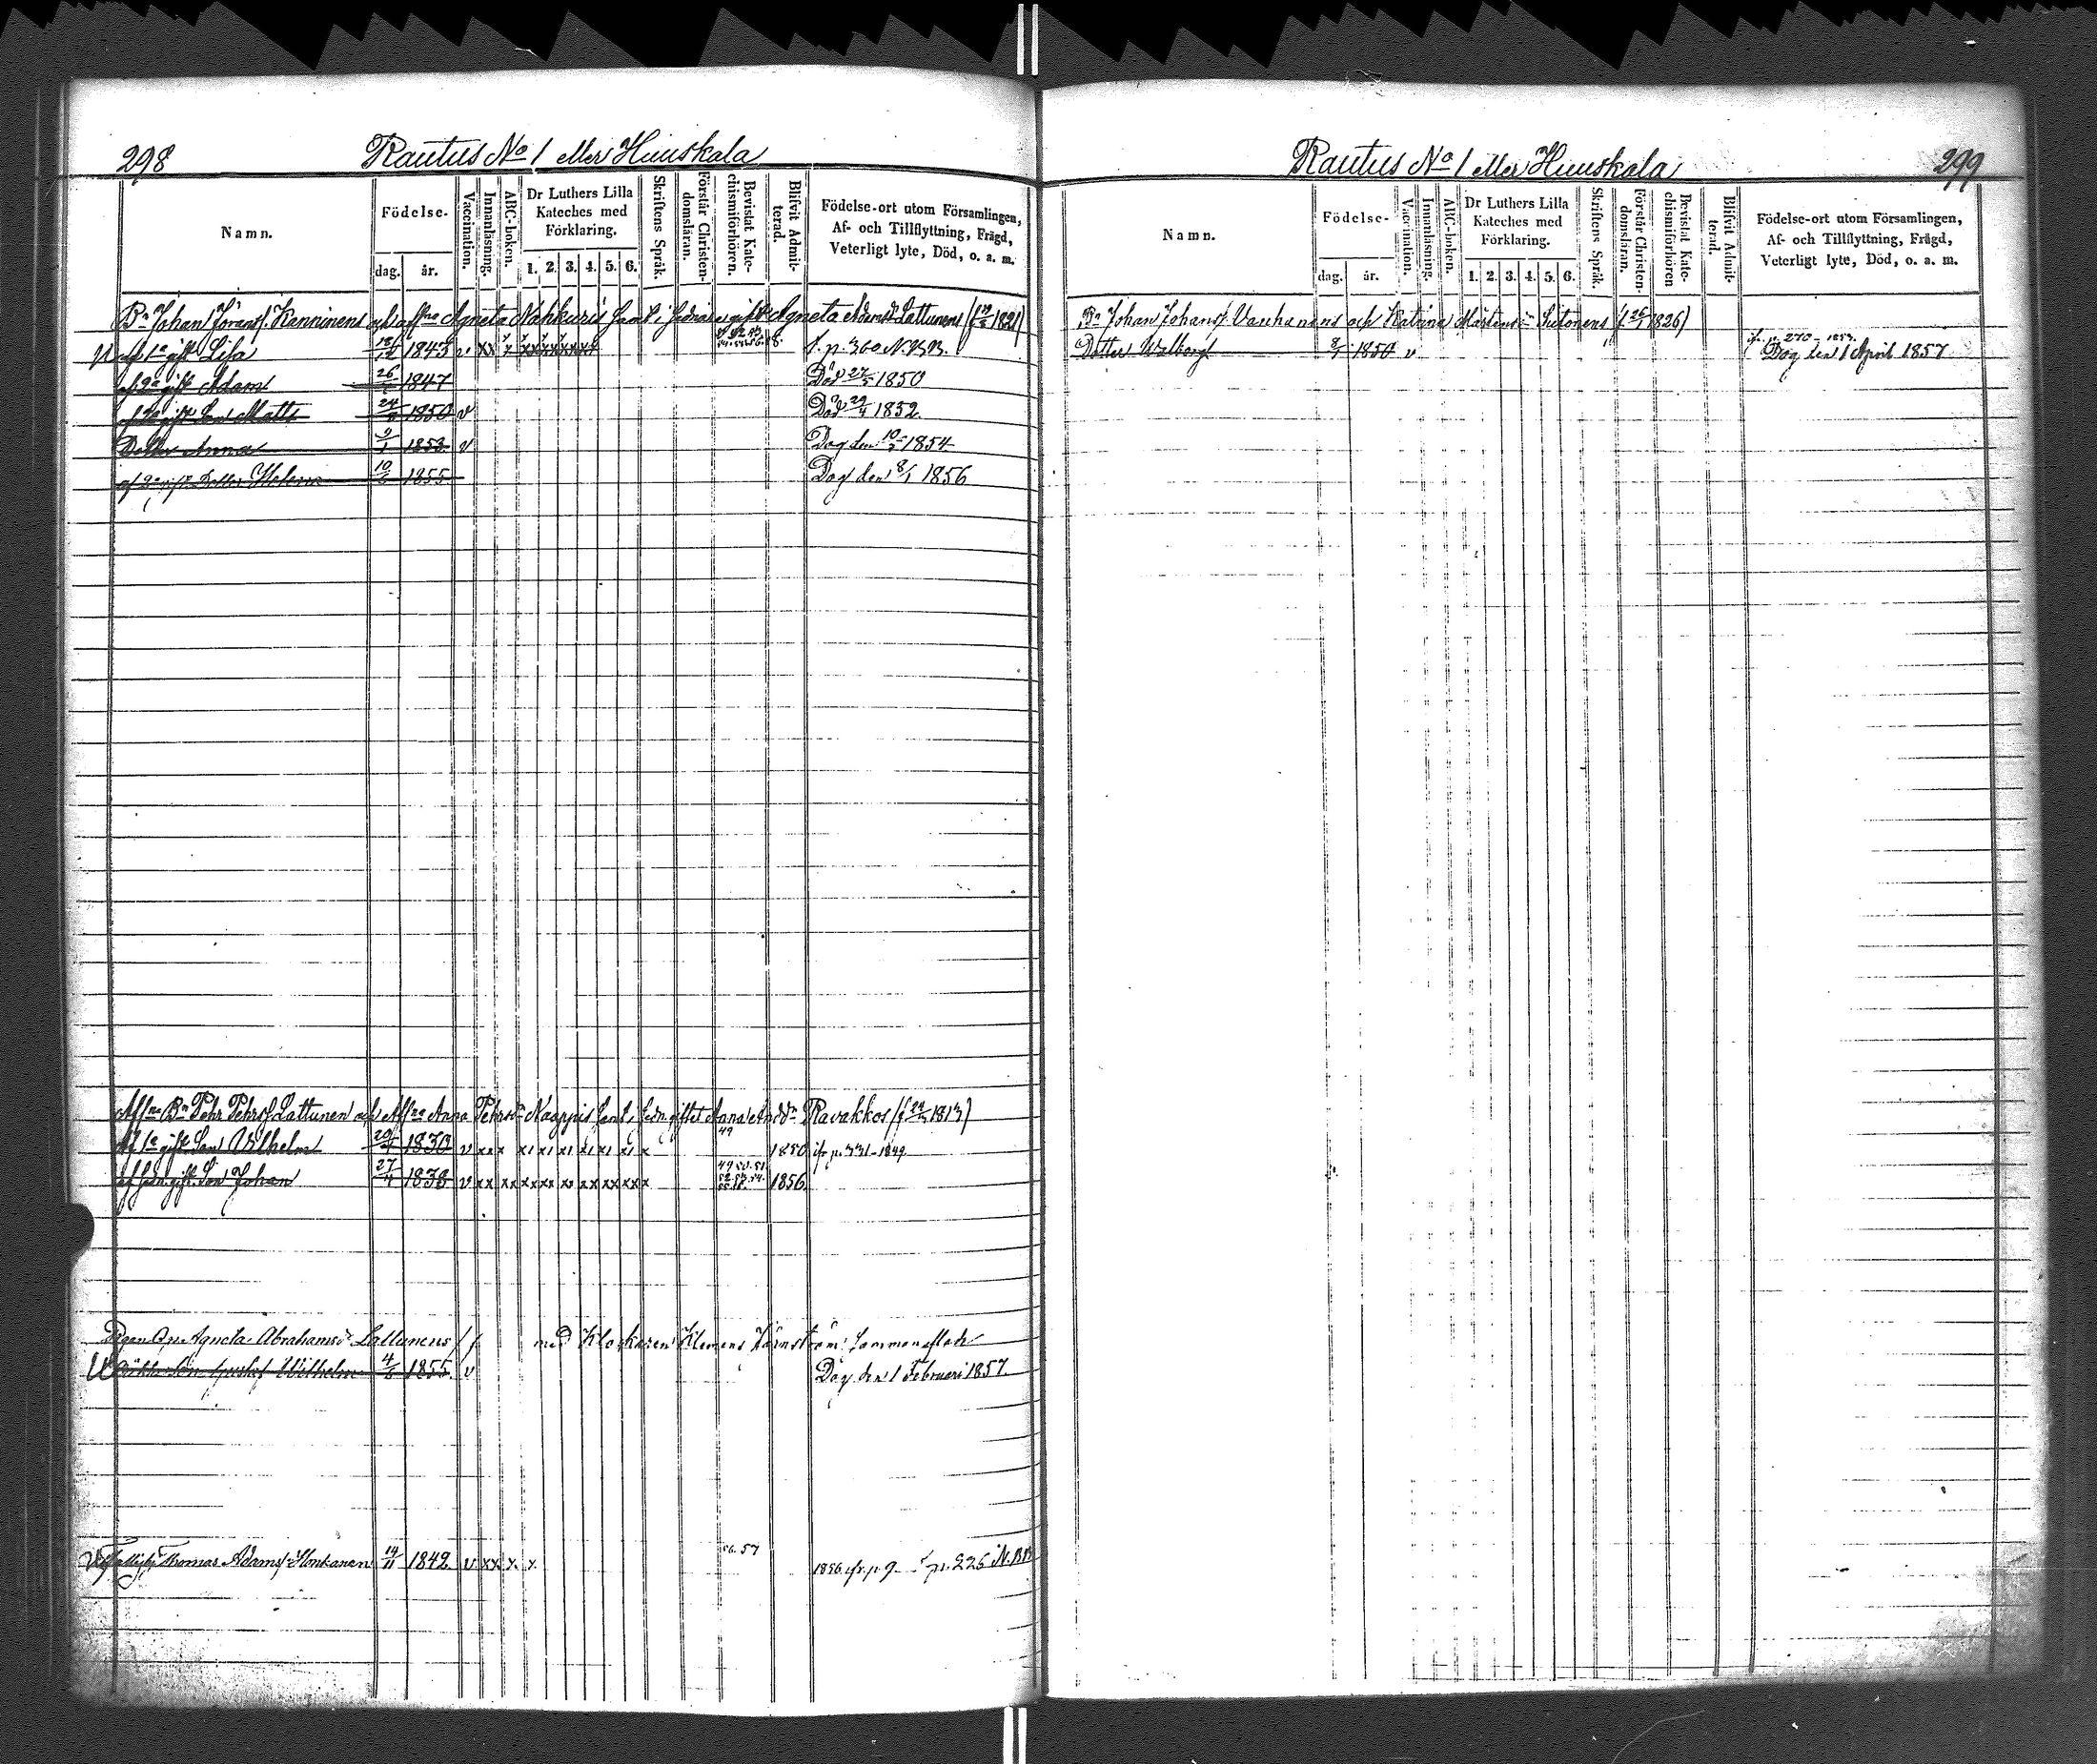 298
Rautus No 1 eller Huuskala
Namn.
Födelse-
dag.
år.
Vaccination.
Innanläsning.
ABC-boken.
Dr Luthers Lilla
Kateches med
Förklaring.
1. 2. 3. 4. 5. 6.
Skriftens Språk.
Förstår Christen-
domsläran.
Bevistat Kate-
chismiförhören.
Blifvit Admit-
terad.
Födelse-ort utom Församlingen,
Af- och Tillflyttning, Frägd,
Veterligt lyte, Död, o. a. m.
Bn Johan Kanninens och Agneta Nahkuris samt i sednare giftet Agneta Adamsdr Lattunens 1821)
af 1a gift Lisa 1843 v xx f. p. 360 N.B.B.
af 2a gift Adam 26 1847 Död 27/5 1850
Son Matts 24 1850 v Död 29/4 1852.
Dotter Anna 9/1 1853 v Dog den 10 1854
af 2a gift Dotter Helena 10 1855 Dog den 8/1 1856
Bn Pehr Pehrs Lattunen och Anna Pehrsdr Naappis samt i sedn. giftet Anna Ravakkos 1817)
49
af 1a gift Son Wilhelm 1830 v xxx x1 x1 x1 x1 x1 x1 x 1850 p. 331-1849
49 50. 51.
af sedn gift Son Johan 27 1838 v xx xx xx xx xx xx x 1856.
Agneta Abrahamsdr Lattunens med Klockaren Klemens
Wilhelm 4 1855 v Dog den 1 Februari 1857.
56. 57
Thomas Adams Honkanen 14/11 1842 v xx x x. 1856 p. 9 p. 226 N.BB
Rautus No 1 eller Huuskala
299
Namn.
Födelse-
dag.
år.
Vaccination.
Innanläsning.
ABC-boken.
Dr Luthers Lilla
Kateches med
Förklaring.
1. 2. 3. 4. 5. 6.
Skriftens Språk.
Förstår Christen-
domsläran.
Bevistat Kate-
chismiförhören
Blifvit Admit-
terad.
Födelse-ort utom Församlingen,
Af- och Tillflyttning, Frägd,
Veterligt lyte, Död, o. a. m.
Bn Johan Johans Vanhanens och Katrina Mårtensdr Sutonens 1826)
p. 270
Dotter Walborg 1850 v Dog den 1 April 1857